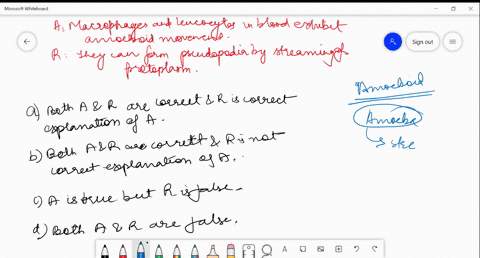 Microsoft Whiteboard
A: Macrophages and leucocytes in blood exhibit
amoeboid movement.
Sign out
R: They can form pseudopodia by streaming of
protoplasm.
Amoeboid
Amoeba
a) Both A & R are correct & R is correct
explanation of A.
b) Both A & R are correct & R is not
correct explanation of A.
c) A is true but R is false.
d) Both A & R are false.